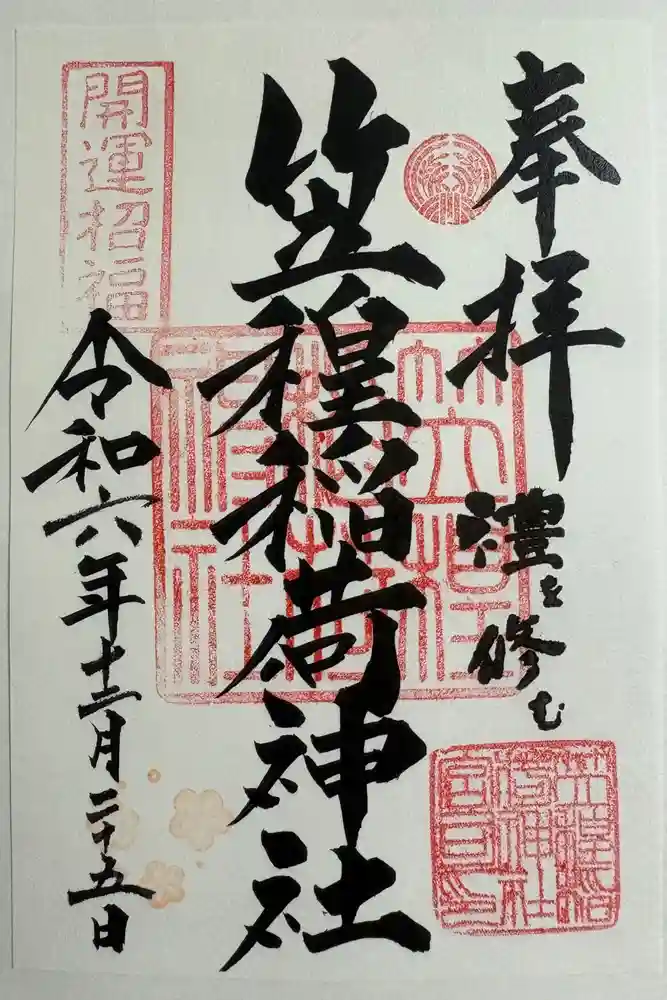 奉拝
禮を修む
笠䅣稲荷神社
令和六年十二月二十五日
開運招福
笠䅣稲荷神社
笠䅣稲荷神社宮司之印